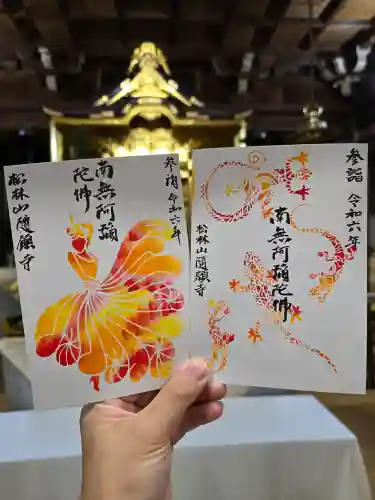 参詣 令和六年
南無阿彌
陀佛
松林山隨願寺
参詣 令和六年
南無阿彌陀佛
松林山
隨願寺